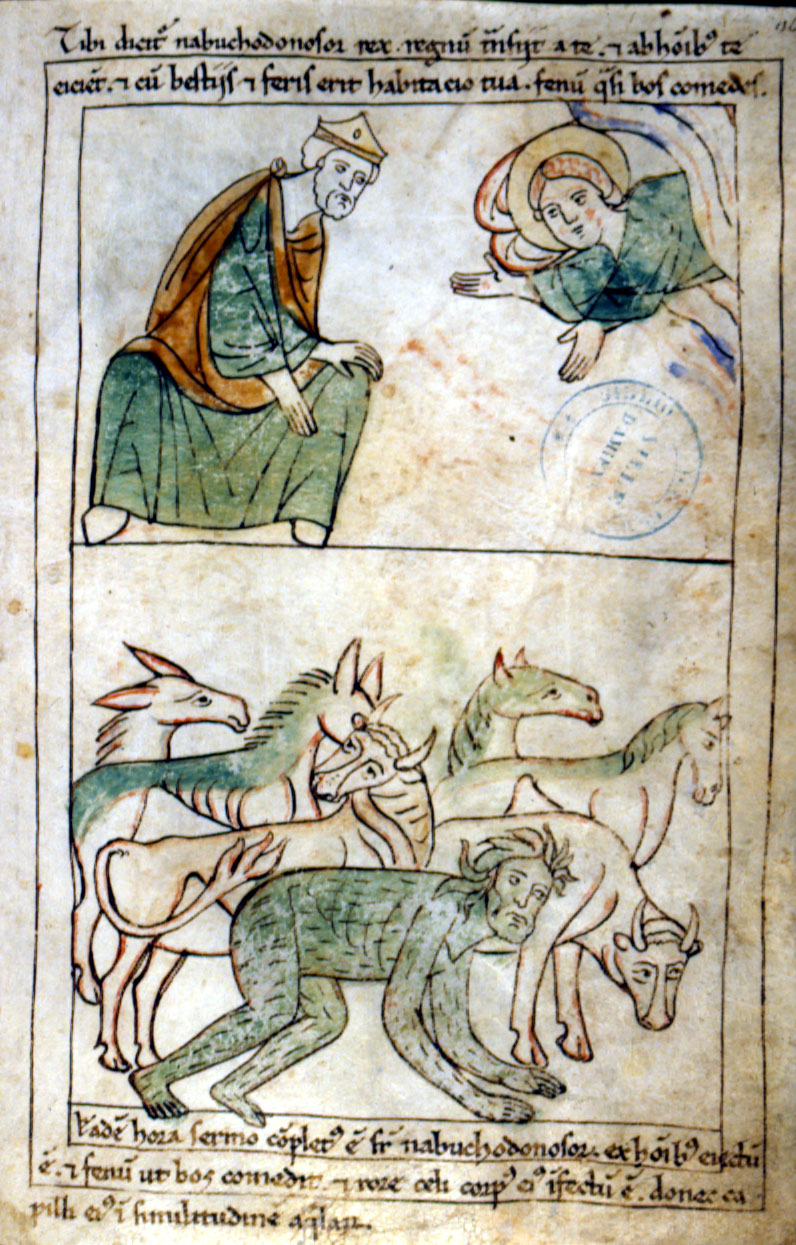 Tibi dicit᷑ nabuchodonosor rex. regnū t̄nsijt a te. ⁊ ab hōib᷒ te
eiciēt. ⁊ cū bestijs ⁊ feris erit habitacio tua. fenū q̄si bos comedes.
DAMIA
Eadē hora sermo cōplet᷒ ē sr̄ nabuchodonosor. ex hōib᷒ eiectū
ē. ⁊ fenū ut bos comedit. ⁊ rore celi corp᷒ ei᷒ īfectū ē. donec ca
pilli ei᷒ ī similitudinē aq̄laꝝ.